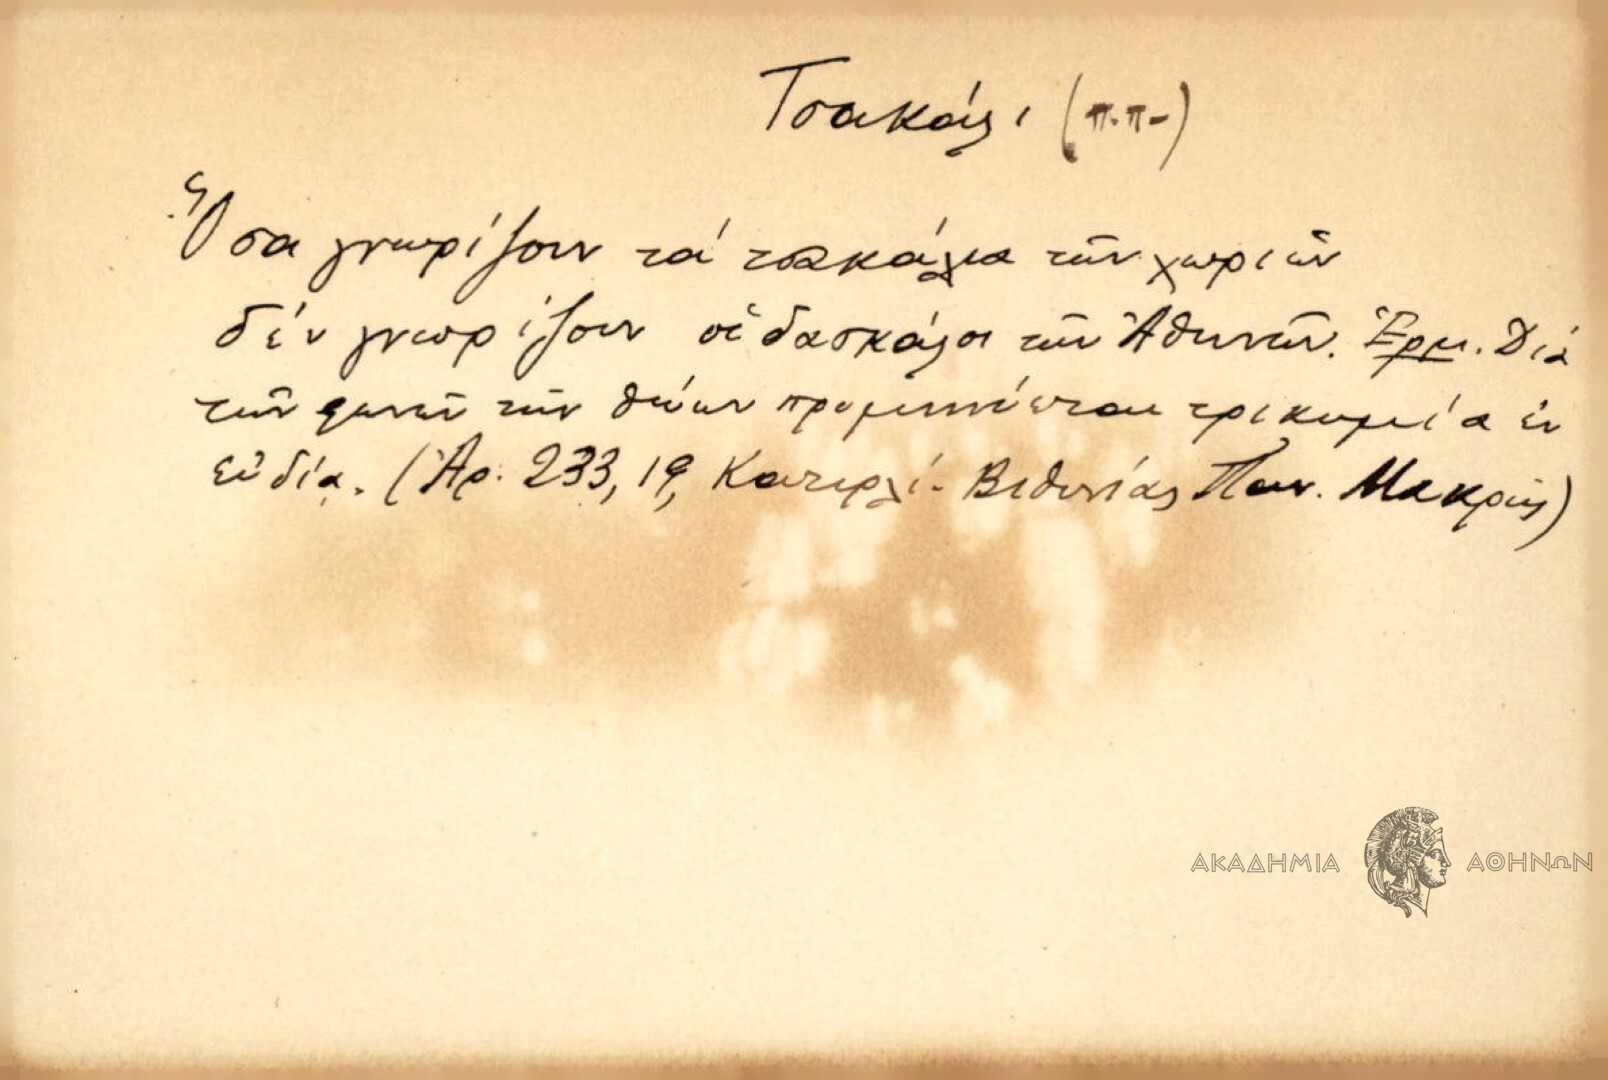 Τσακάλι (π.π.)
Ὅσα γνωρίζουν τά τσακάλια τῶν χωριῶν
δέν γνωρίζουν οἱ δασκάλοι τῶν Ἀθηνῶν. Ἑρμ. Διά
τῶν φωνῶν τῶν θώων προμηνύεται τρικυμία ἐν
εὐδίᾳ. (Ἀρ. 233, 19, Κατιρλί - Βιθυνίας Παν. Μακρῆς)
ΑΚΑΔΗΜΙΑ ΑΘΗΝΩΝ